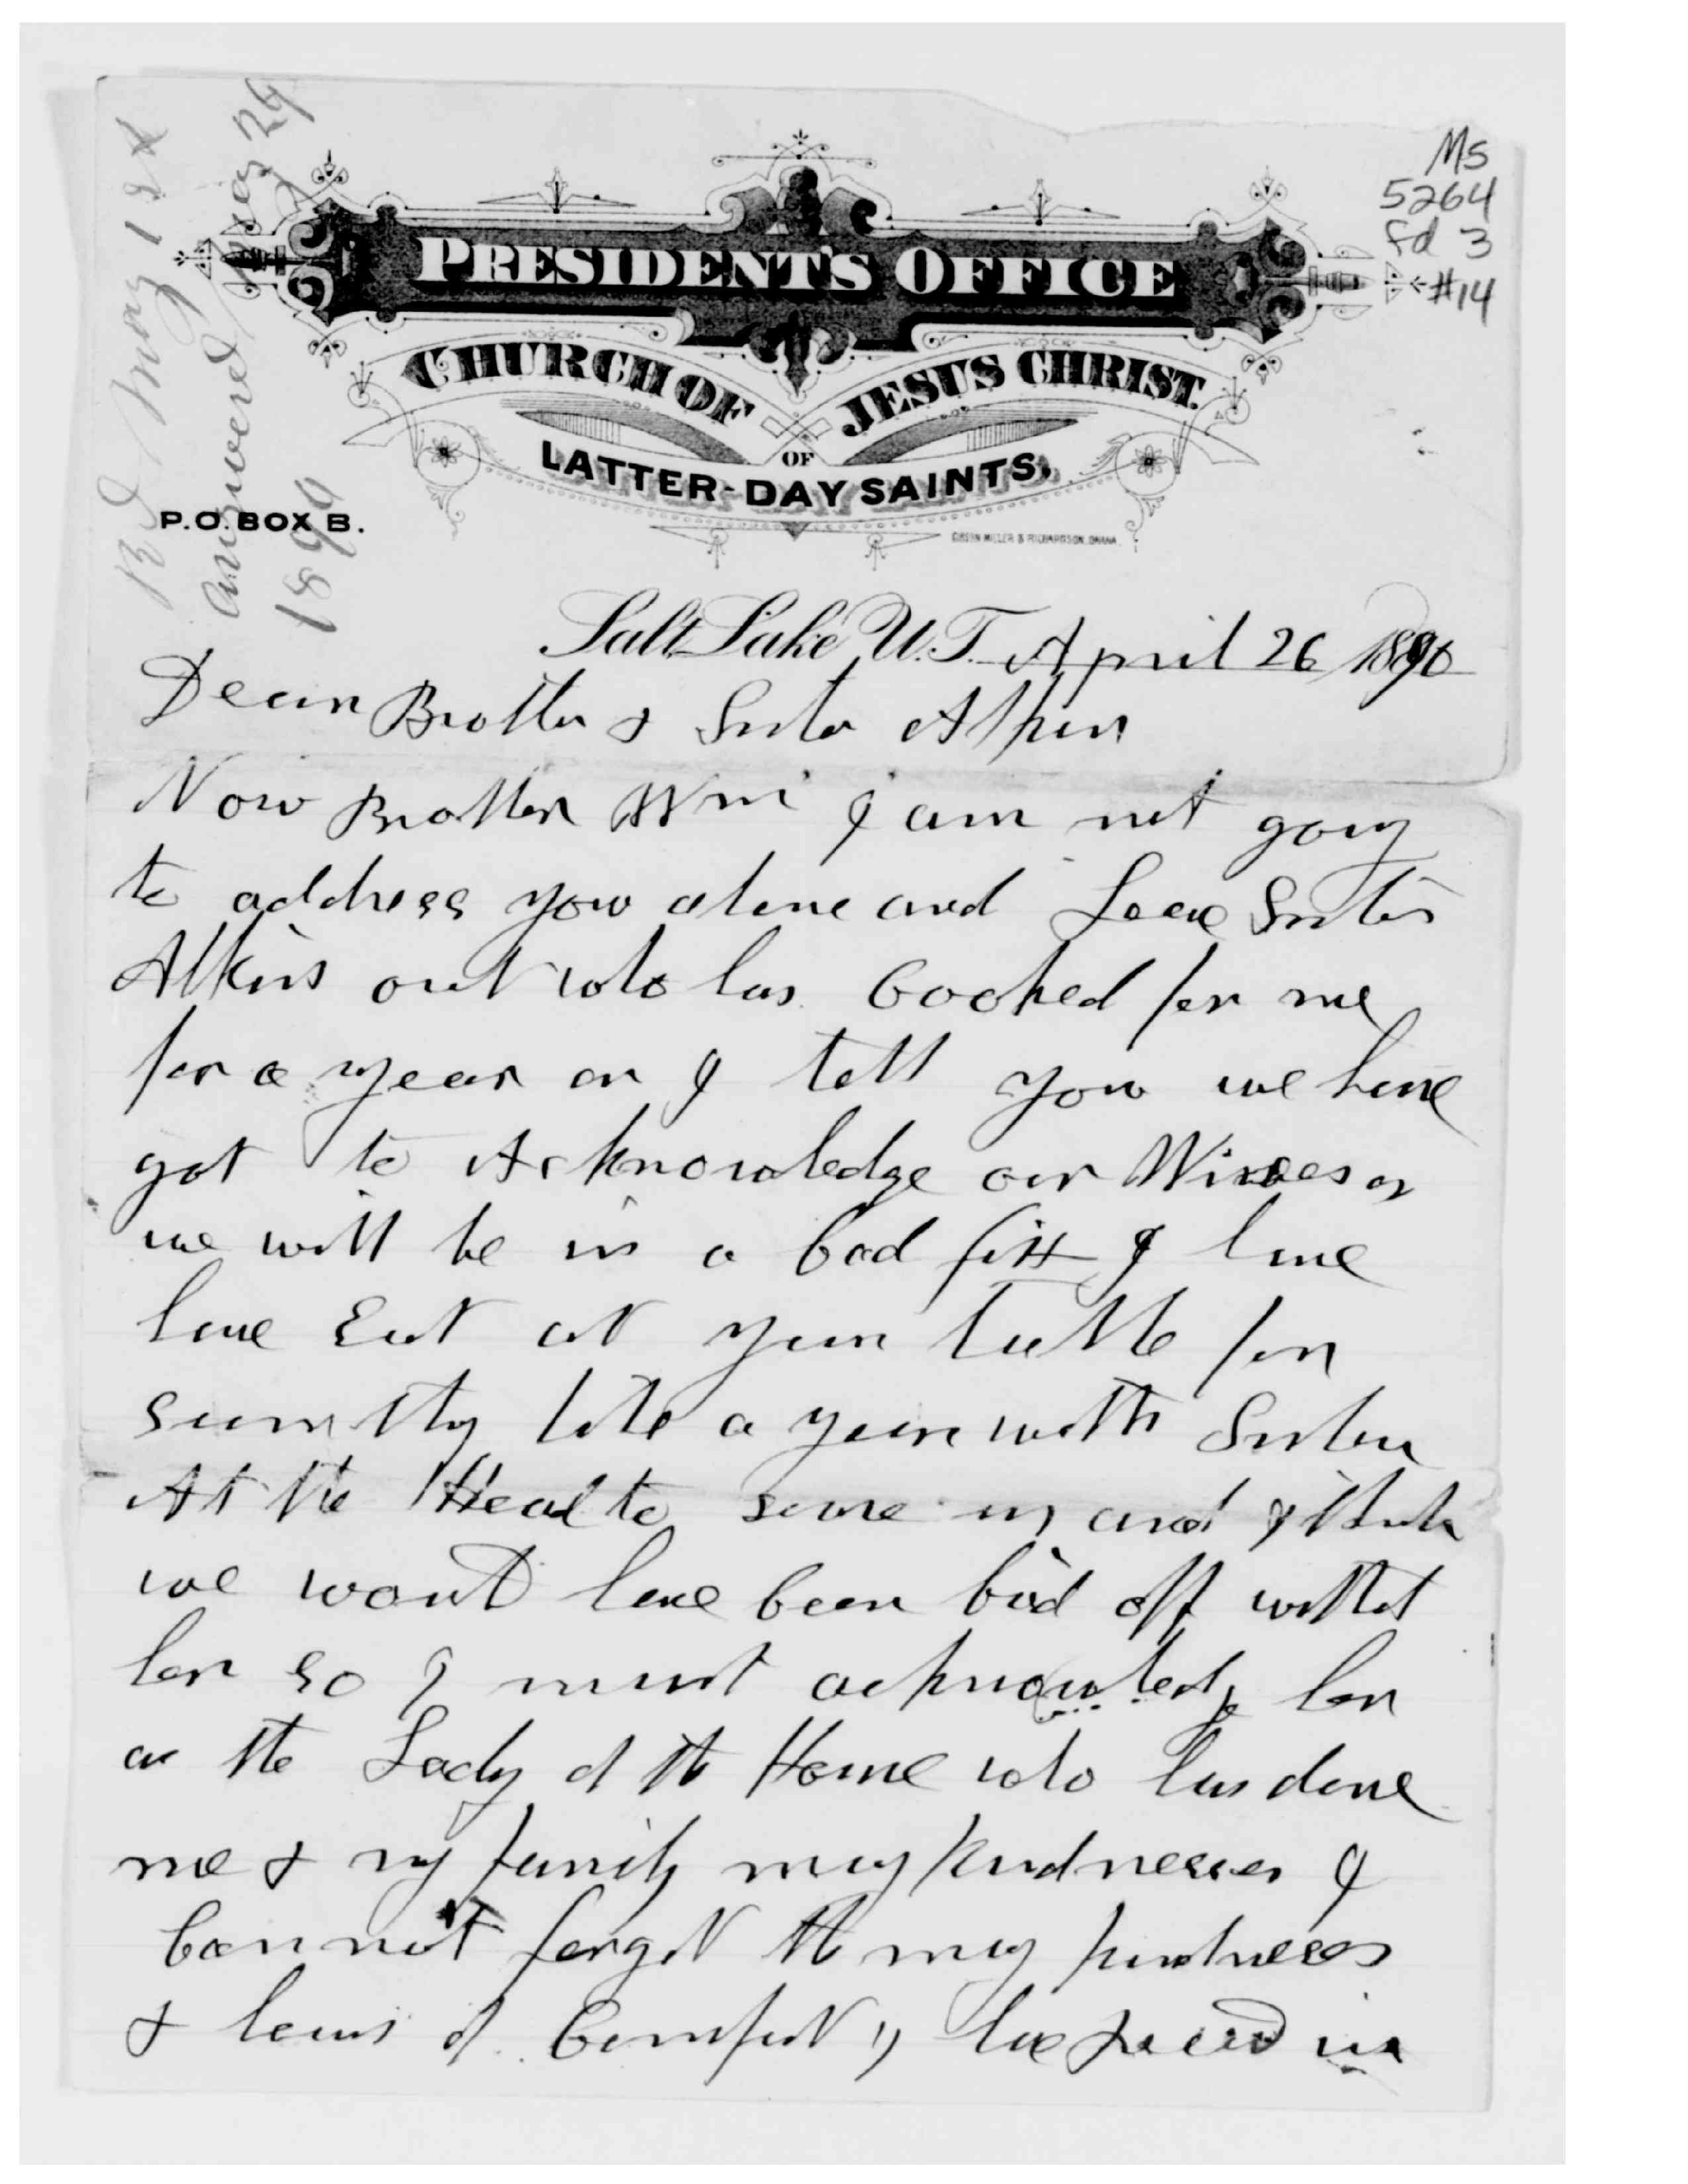 Rd May 1st
answered May 29
1890
Ms
5264
fd 3
#14
PRESIDENT'S OFFICE
CHURCH OF JESUS CHRIST
OF
LATTER-DAY SAINTS.
P.O. BOX B.
GIBSON MILLER & RICHARDSON, OMAHA
Salt Lake U.T. April 26 1890
Dear Brother & Sister Atkin
Now Brother Wm I am not going
to address you alone and Leave Sister
Atkin out who has Cooked for me
for a year or I tell you we have
got to Acknowledge our Wives or
we will be in a bad fix I have
have Eat at your table for
sumthing like a year with Sister
At the Head to serve us and I think
we wout have been bad off without
her so I must acknowledge her
as the Lady of the House who has done
me & my family many kindnesses I
Cannot forget the many kindnesses
& hours of Comfort I have in